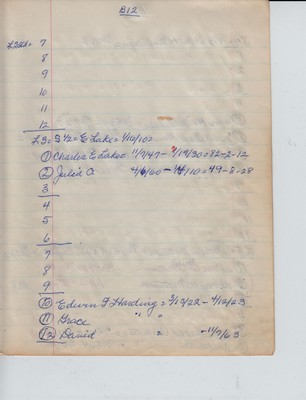 B12
L2 1/2 = 7
8
9
10
11
12
L3 = S 1/2 = E Lake = 1/10/102
① Charles E Lake = 11/7/47 - 1/19/30 = 82-2-12
② Julia A. 4/6/60 - 1/4/110 = 49-8-28
3
4
5
6
7
8
9
⑩ Edwin F Harding = 3/13/22 - 4/12/63
⑪ Grace " "
⑫ David = - 11/7/63